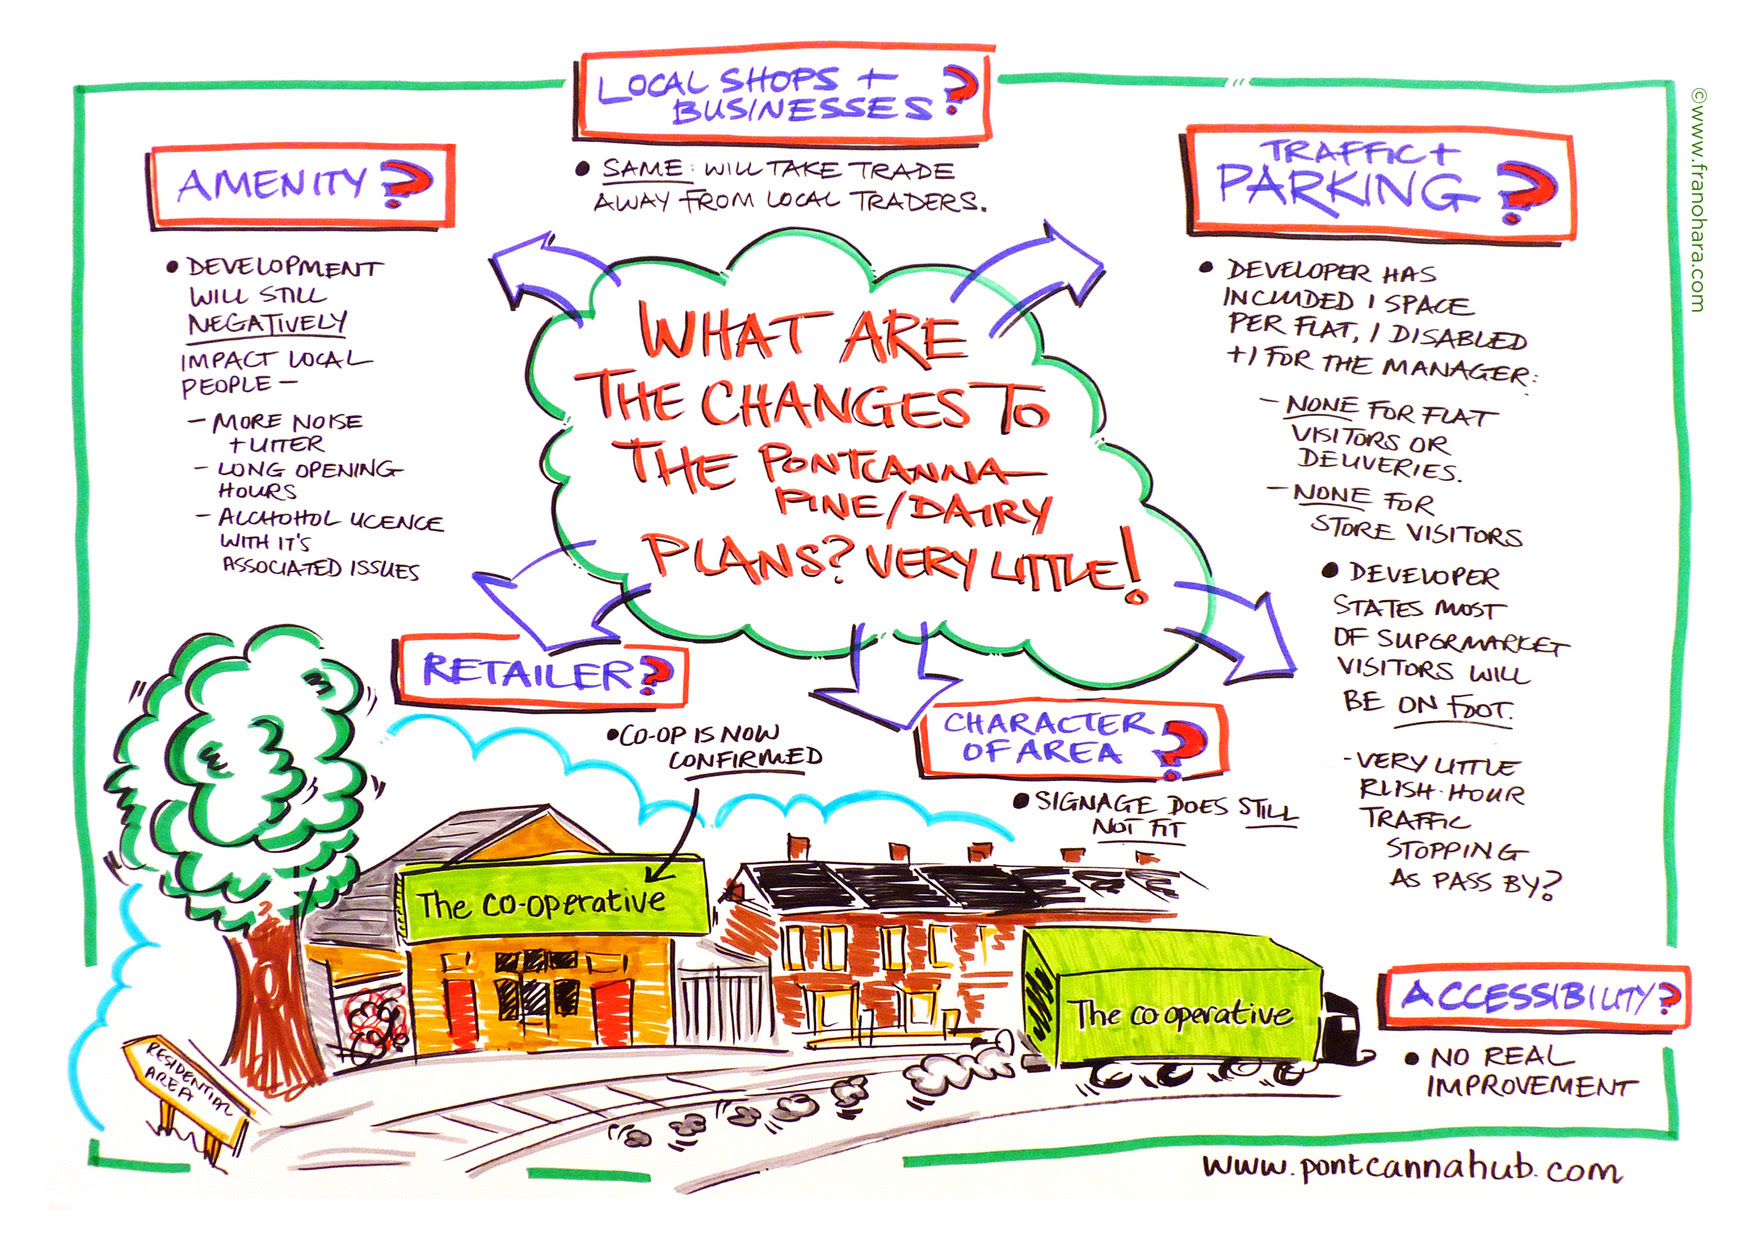 LOCAL SHOPS +
BUSINESSES?
• SAME: WILL TAKE TRADE
AWAY FROM LOCAL TRADERS.
AMENITY?
• DEVELOPMENT
WILL STILL
NEGATIVELY
IMPACT LOCAL
PEOPLE –
– MORE NOISE
+ LITTER
– LONG OPENING
HOURS
– ALCHOHOL LICENCE
WITH IT'S
ASSOCIATED ISSUES
TRAFFIC +
PARKING?
• DEVELOPER HAS
INCLUDED 1 SPACE
PER FLAT, 1 DISABLED
+ 1 FOR THE MANAGER:
– NONE FOR FLAT
VISITORS OR
DELIVERIES.
– NONE FOR
STORE VISITORS
• DEVELOPER
STATES MOST
OF SUPERMARKET
VISITORS WILL
BE ON FOOT.
- VERY LITTLE
RUSH-HOUR
TRAFFIC
STOPPING
AS PASS BY?
WHAT ARE
THE CHANGES TO
THE PONTCANNA
PINE/DAIRY
PLANS? VERY LITTLE!
RETAILER?
• CO-OP IS NOW
CONFIRMED
CHARACTER
OF AREA?
• SIGNAGE DOES STILL
NOT FIT
The co-operative
The co operative
ACCESSIBILITY?
• NO REAL
IMPROVEMENT
RESIDENTIAL
AREA
www.pontcannahub.com
©www.franohara.com